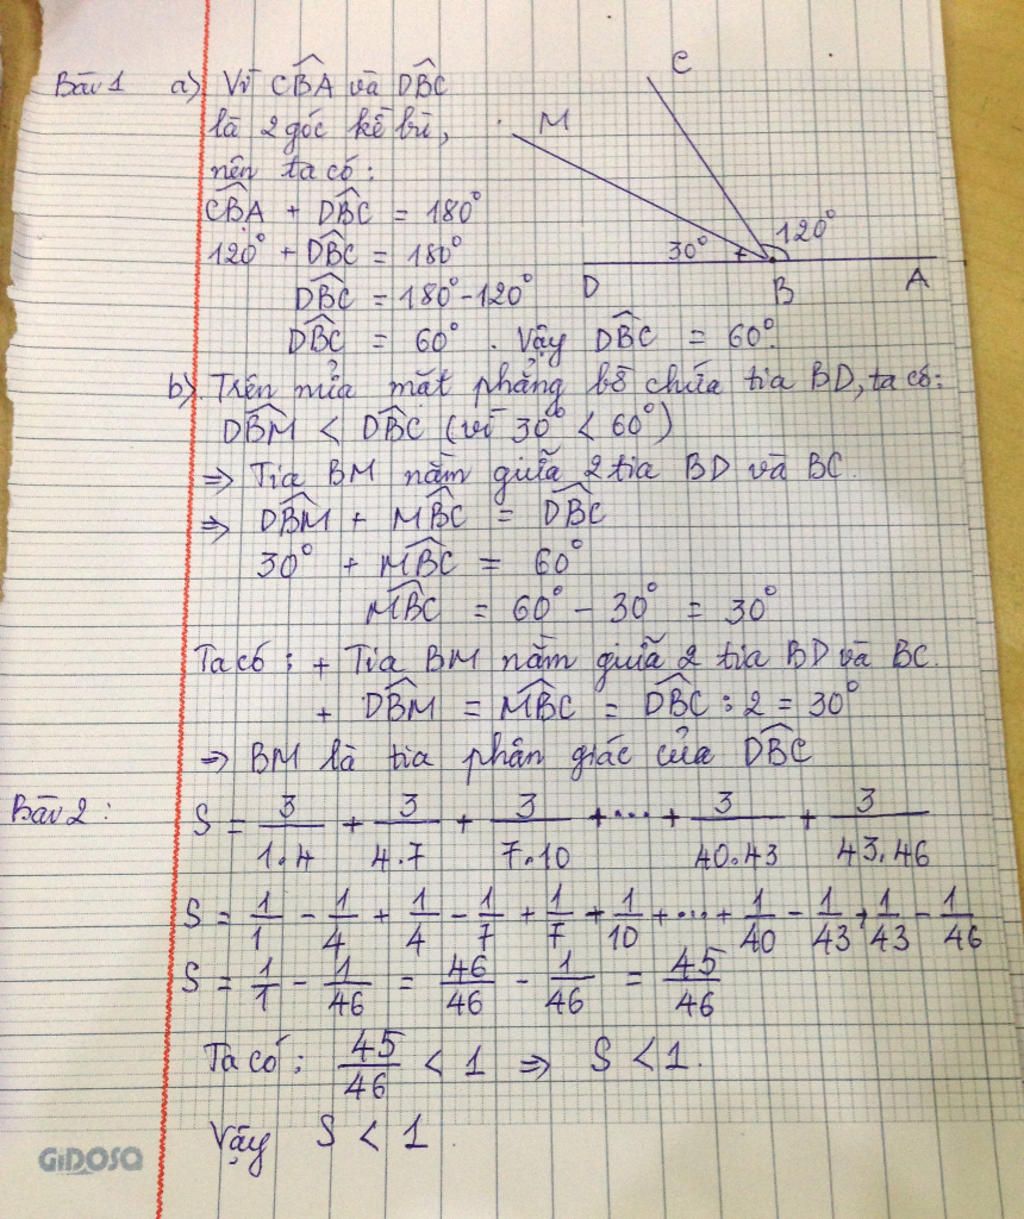 Bài 1 a) Vì CB̂A và DB̂C
là 2 góc kề bù,
nên ta có:
CB̂A + DB̂C = 180°
120° + DB̂C = 180°
DB̂C = 180° - 120°
DB̂C = 60°. Vậy DB̂C = 60°.
C
M
120°
30°
D B A
b) Trên nửa mặt phẳng bờ chứa tia BD, ta có:
DB̂M < DB̂C (vì 30° < 60°)
=> Tia BM nằm giữa 2 tia BD và BC.
=> DB̂M + MB̂C = DB̂C
30° + MB̂C = 60°
MB̂C = 60° - 30° = 30°
Ta có: + Tia BM nằm giữa 2 tia BD và BC.
+ DB̂M = MB̂C = DB̂C : 2 = 30°
=> BM là tia phân giác của DB̂C
Bài 2: S = 3/1.4 + 3/4.7 + 3/7.10 + ... + 3/40.43 + 3/43.46
S = 1/1 - 1/4 + 1/4 - 1/7 + 1/7 + 1/10 + ... + 1/40 - 1/43 + 1/43 - 1/46
S = 1/1 - 1/46 = 46/46 - 1/46 = 45/46
Ta có: 45/46 < 1 => S < 1.
Vậy S < 1.
GIDOSA